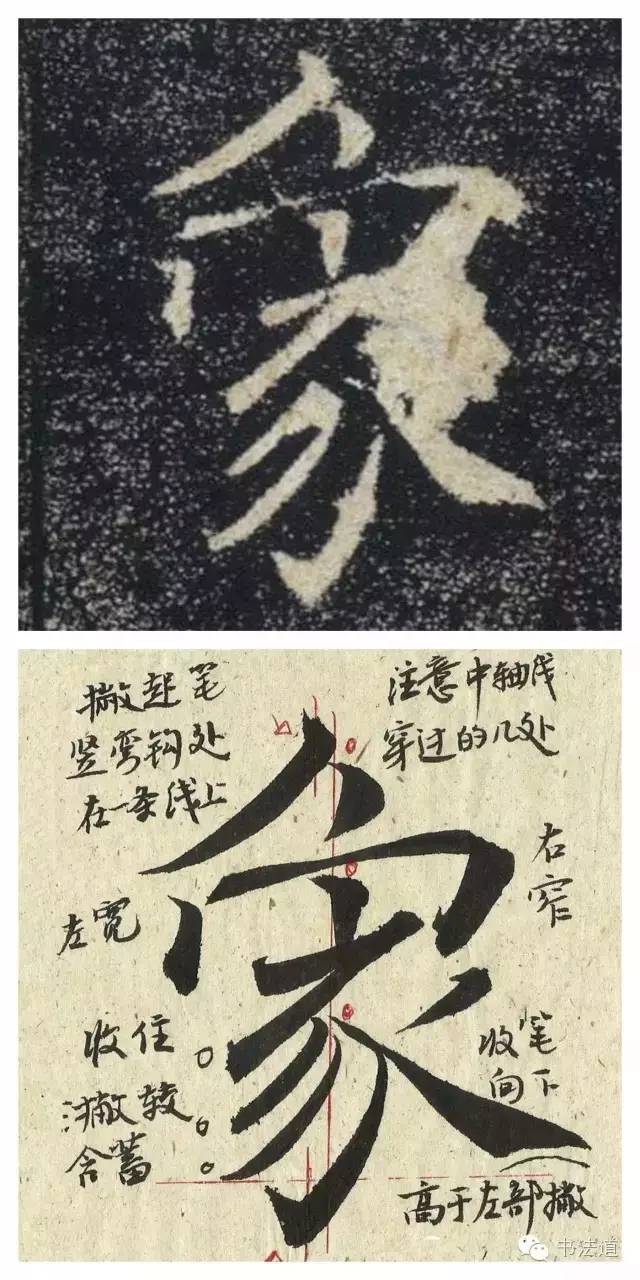 象
撇起笔
竖弯钩处
在一条线上
注意中轴线
穿过的几处
象
左宽
右窄
收住
撇较
含蓄
收笔
向下
高于左部撇
书法道